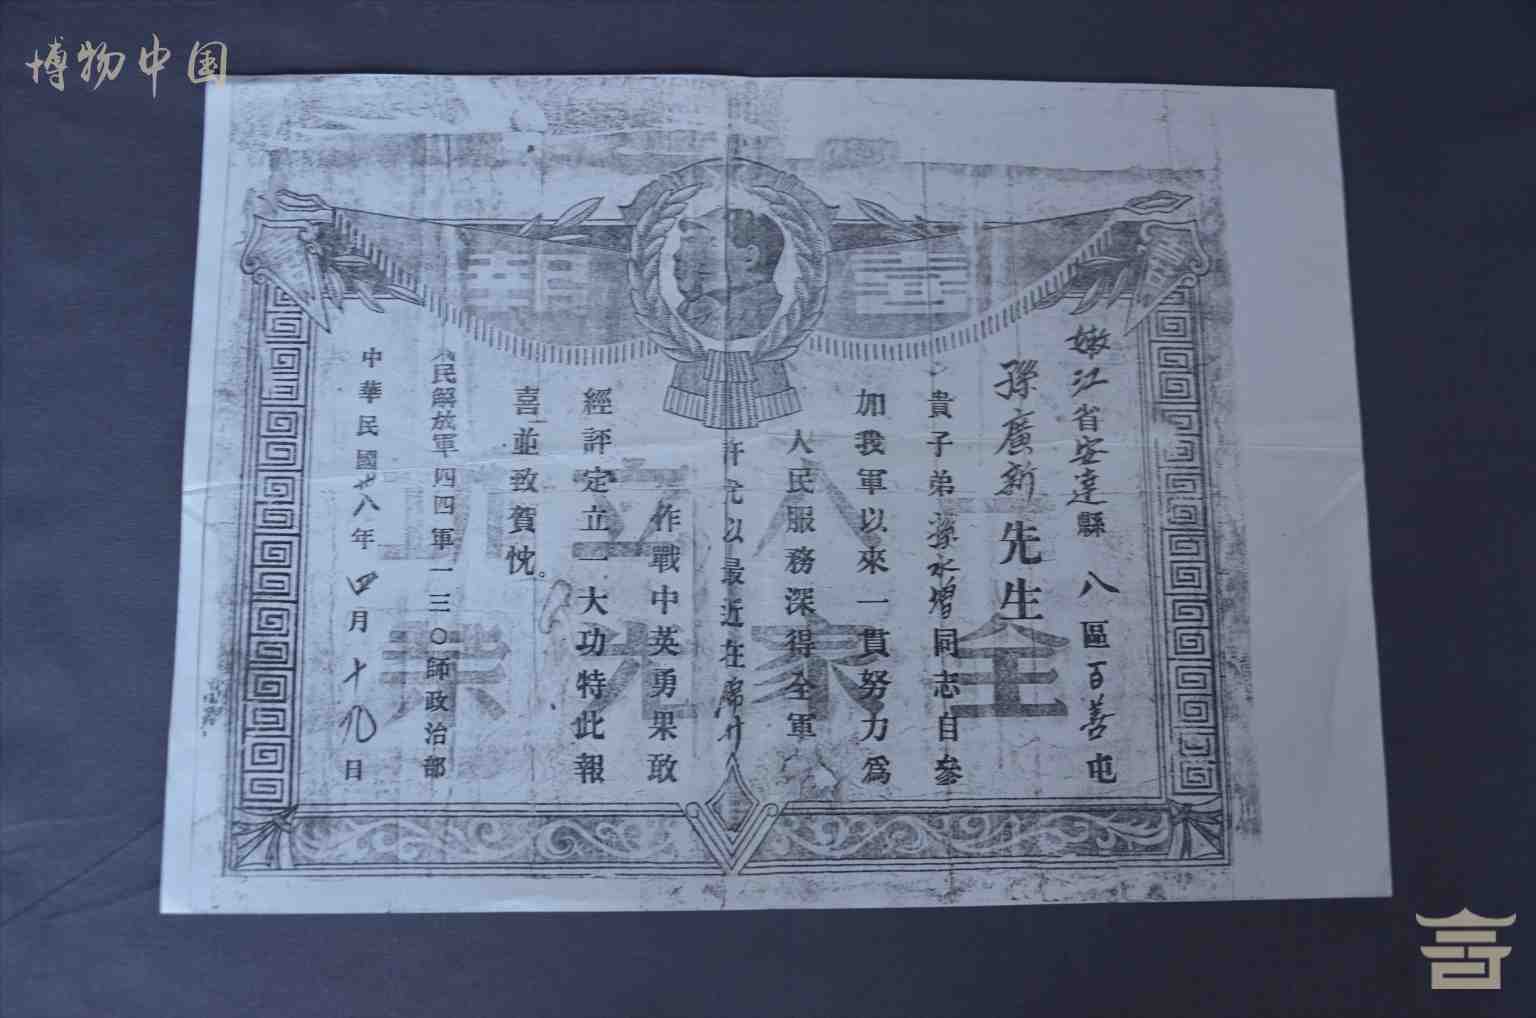 博物中国
喜報
一人立功
全家光榮
嫩江省安達縣八區百善屯
孫廣新先生
貴子弟孫永增同志自參
加我軍以來一貫努力為
人民服務深得全軍
許尤以最近在
作戰中英勇果敢
經評定立一大功特此報
喜並致賀忱。
人民解放軍四四軍一三〇師政治部
中華民國卅八年四月十九日